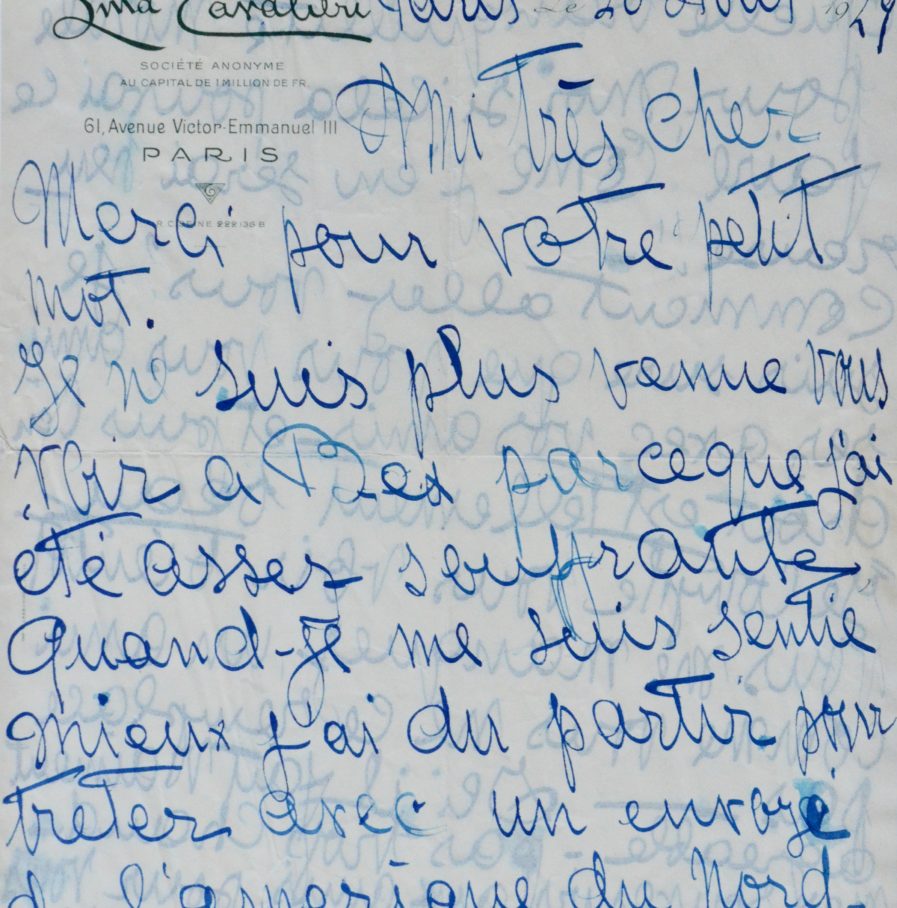 Lina Cavalieri Paris Le 20 Avril 1929
SOCIÉTÉ ANONYME
AU CAPITAL DE 1 MILLION DE FR.
61, Avenue Victor-Emmanuel III
PARIS
R.C. SEINE 222136 B
Ami très cher
Merci pour votre petit
mot.
Je ne suis plus venue vous
voir a Bex parceque j'ai
été assez souffrante
Quand-je me suis sentie
mieux j'ai du partir pour
treter avec un envoyé
de l'amerique du Nord.